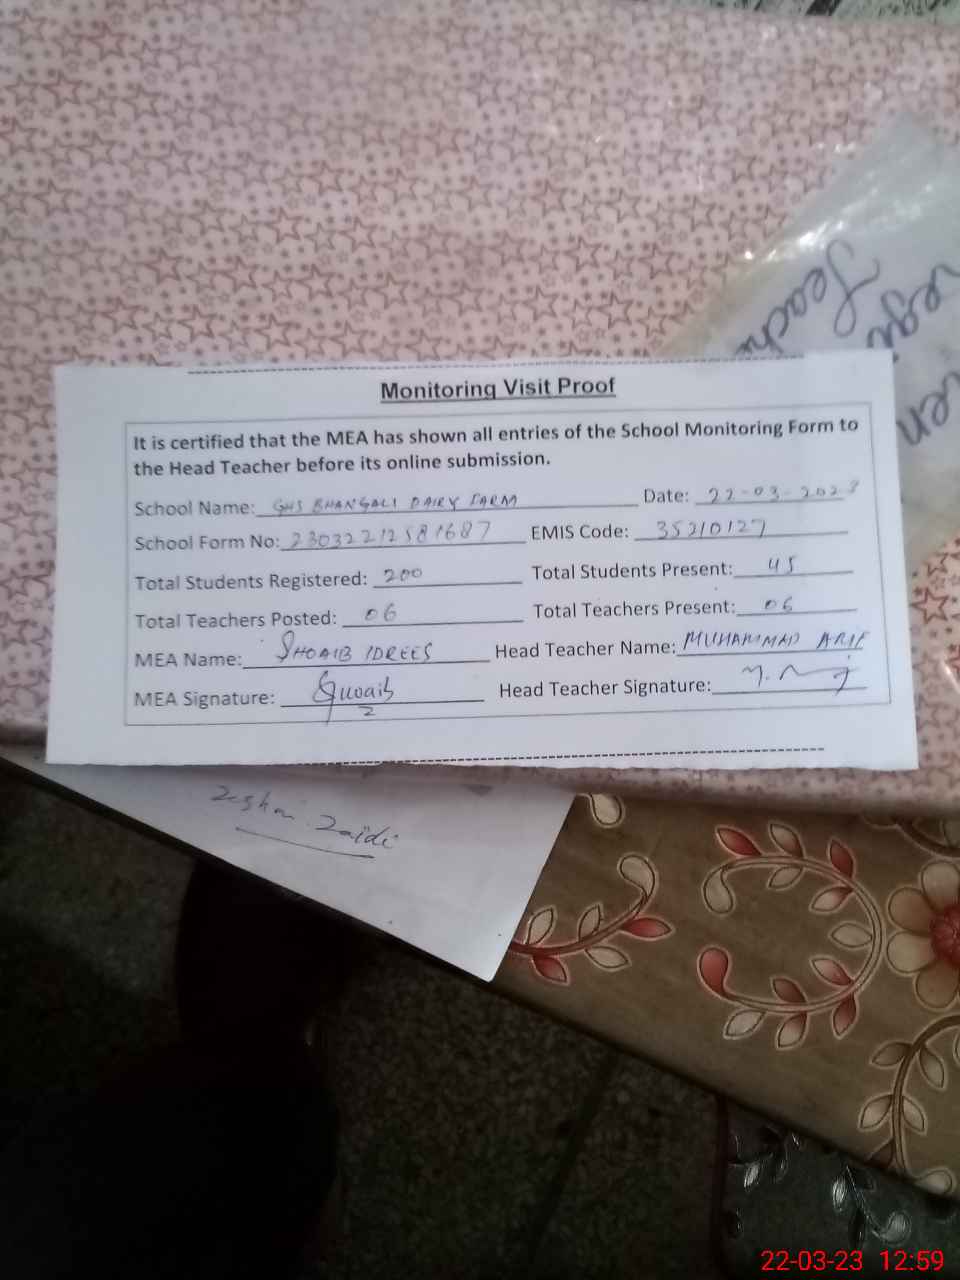 Monitoring Visit Proof
It is certified that the MEA has shown all entries of the School Monitoring Form to
the Head Teacher before its online submission.
School Name: GHS BHANGALI DAIRY FARM Date: 22-03-2023
School Form No: 23032212581687 EMIS Code: 35210127
Total Students Registered: 200 Total Students Present: 45
Total Teachers Posted: 06 Total Teachers Present: 06
MEA Name: SHOAIB IDREES Head Teacher Name: MUHAMMAD ARIF
MEA Signature: Shoaib Head Teacher Signature:
Zaidi
22-03-23 12:59